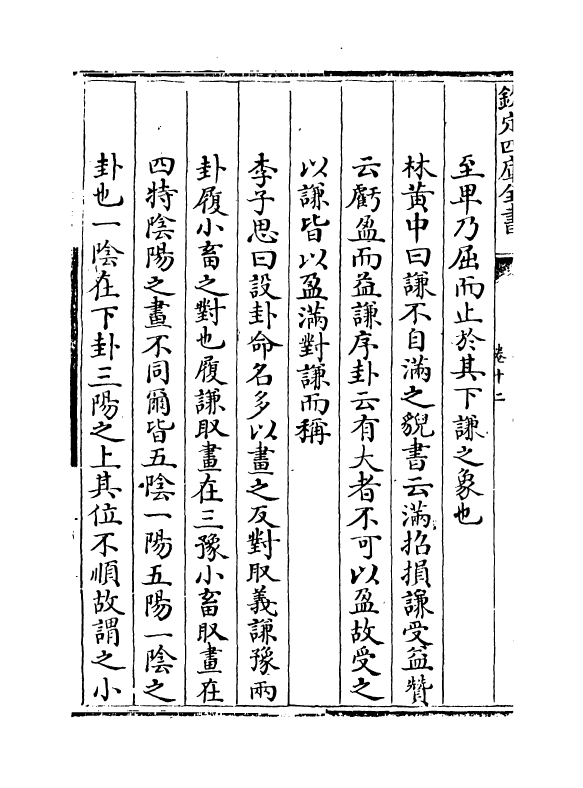 欽定四庫全書
卷十二
至卑乃屈而止於其下謙之象也
林黃中曰謙不自滿之貌書云滿招損謙受益贊
云虧盈而益謙序卦云有大者不可以盈故受之
以謙皆以盈滿對謙而稱
李子思曰設卦命名多以畫之反對取義謙豫兩
卦履小畜之對也履謙取畫在三豫小畜取畫在
四特陰陽之畫不同爾皆五陰一陽五陽一陰之
卦也一陰在下卦三陽之上其位不順故謂之小